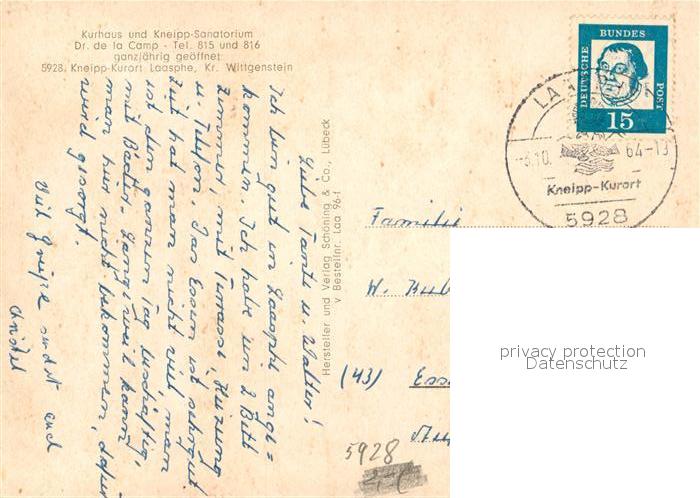 Kurhaus und Kneipp-Sanatorium
Dr. de la Camp - Tel. 815 und 816
ganzjährig geöffnet
5928 Kneipp-Kurort Laasphe, Kr. Wittgenstein
Liebe Tante u. Walter!
Ich bin gut in Laasphe ange=
kommen. Ich habe ein 2 Bett
zimmer, mit Terasse, Heizung
u. Telefon. Das Essen ist sehr gut
Zeit hat man nicht viel, man
ist den ganzen Tag beschäftigt,
mit Bäder. Langeweil kann
man hier nicht bekommen, dafür
wird gesorgt.
Viel Grüße sendet euch
Christel
Hersteller und Verlag Schöning & Co., Lübeck
v Bestellnr. Laa 96-1
DEUTSCHE BUNDES POST
15
-3.10. 64-13
Kneipp-Kurort
5928
Familie
W.
(43) Ess
5928
privacy protection
Datenschutz